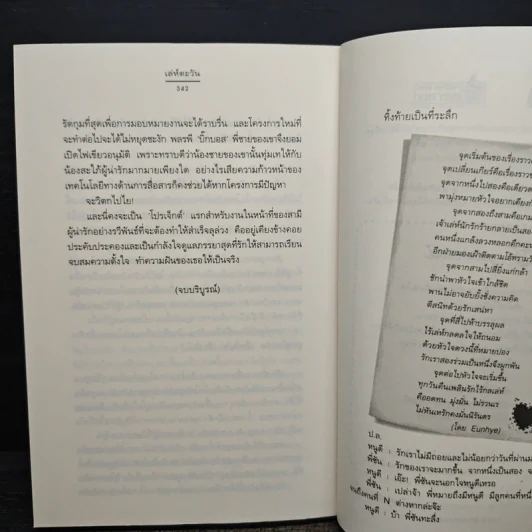 เล่ห์ตะวัน
542
รัดกุมที่สุดเพื่อการมอบหมายงานจะได้ราบรื่น และโครงการใหม่ที่
จะทำต่อไปจะได้ไม่หยุดชะงัก พลรพี 'บิ๊กบอส' พี่ชายของเขาจึงยอม
เปิดไฟเขียวอนุมัติ เพราะทราบดีว่าน้องชายของเขานั้นทุ่มเทให้กับ
น้องสะใภ้ผู้น่ารักมากมายเพียงใด อย่างไรเสียความก้าวหน้าของ
เทคโนโลยีทางด้านการสื่อสารก็คงช่วยได้หากโครงการมีปัญหา
จะวิตกไปไย!
และนี่คงจะเป็น 'โปรเจ็กต์' แรกสำหรับงานในหน้าที่ของสามี
ผู้น่ารักอย่างรวีพันธ์ที่จะต้องทำให้สำเร็จลุล่วง คืออยู่เคียงข้างคอย
ประคับประคองและเป็นกำลังใจดูแลภรรยาสุดที่รักให้สามารถเรียน
จบสมความตั้งใจ ทำความฝันของเธอให้เป็นจริง
(จบบริบูรณ์)
ทิ้งท้ายเป็นที่ระลึก
จุดเริ่มต้นของเรื่องราว
จุดเปลี่ยนเกียร์คือเรื่องราว
จุดจากหนึ่งไปสองคือเดียว
พามุ่งหมายหัวใจอยากเคียง
จุดจากสองถึงสามคือเกม
เจ้าเล่ห์นักรักร้ายกลายเป็นสอง
คนหนึ่งแกล้งลวงหลอกดึกคะ
อีกฝ่ายมองเฝ้าติดตามโอ้พราม
จุดจากสามไปสี่ยิ่งแก่กล้า
ชักนำพาหัวใจเข้าใกล้ชิด
พานไม่อาจยับยั้งชั่งความคิด
ตีสนิทด้วยรักเสน่หา
จุดที่สี่ไปห้าบรรลุผล
ไร้เล่ห์กลดลใจให้ถนอม
ด้วยหัวใจดวงนี้ที่หมายปอง
รักเราสองร่วมเป็นหนึ่งจึงผูกพัน
จุดต่อไปหัวใจจะเริ่มขึ้น
ทุกวันคืนเพลินรักไร้กลเล่ห์
คืออดทน มุ่งมั่น ไม่รวนเร
ไม่หันเหรักคงมั่นนิรันดร
(โดย Eunhye)
ป.ล.
หนูดี : รักเราไม่มีถอยและไม่น้อยกว่าวันที่ผ่านม
พี่ซัน : รักของเราจะมากขึ้น จากหนึ่งเป็นสอง
หนูดี : เอ๊ะ! พี่ซันจะนอกใจหนูดีเหรอ
พี่ซัน : เปล่าจ้า พี่หมายถึงมีหนูดี มีลูกคนที่หนึ่
จนถึงคนที่ N ต่างหากล่ะจ๊ะ
หนูดี : บ้า พี่ซันทะลึ่ง